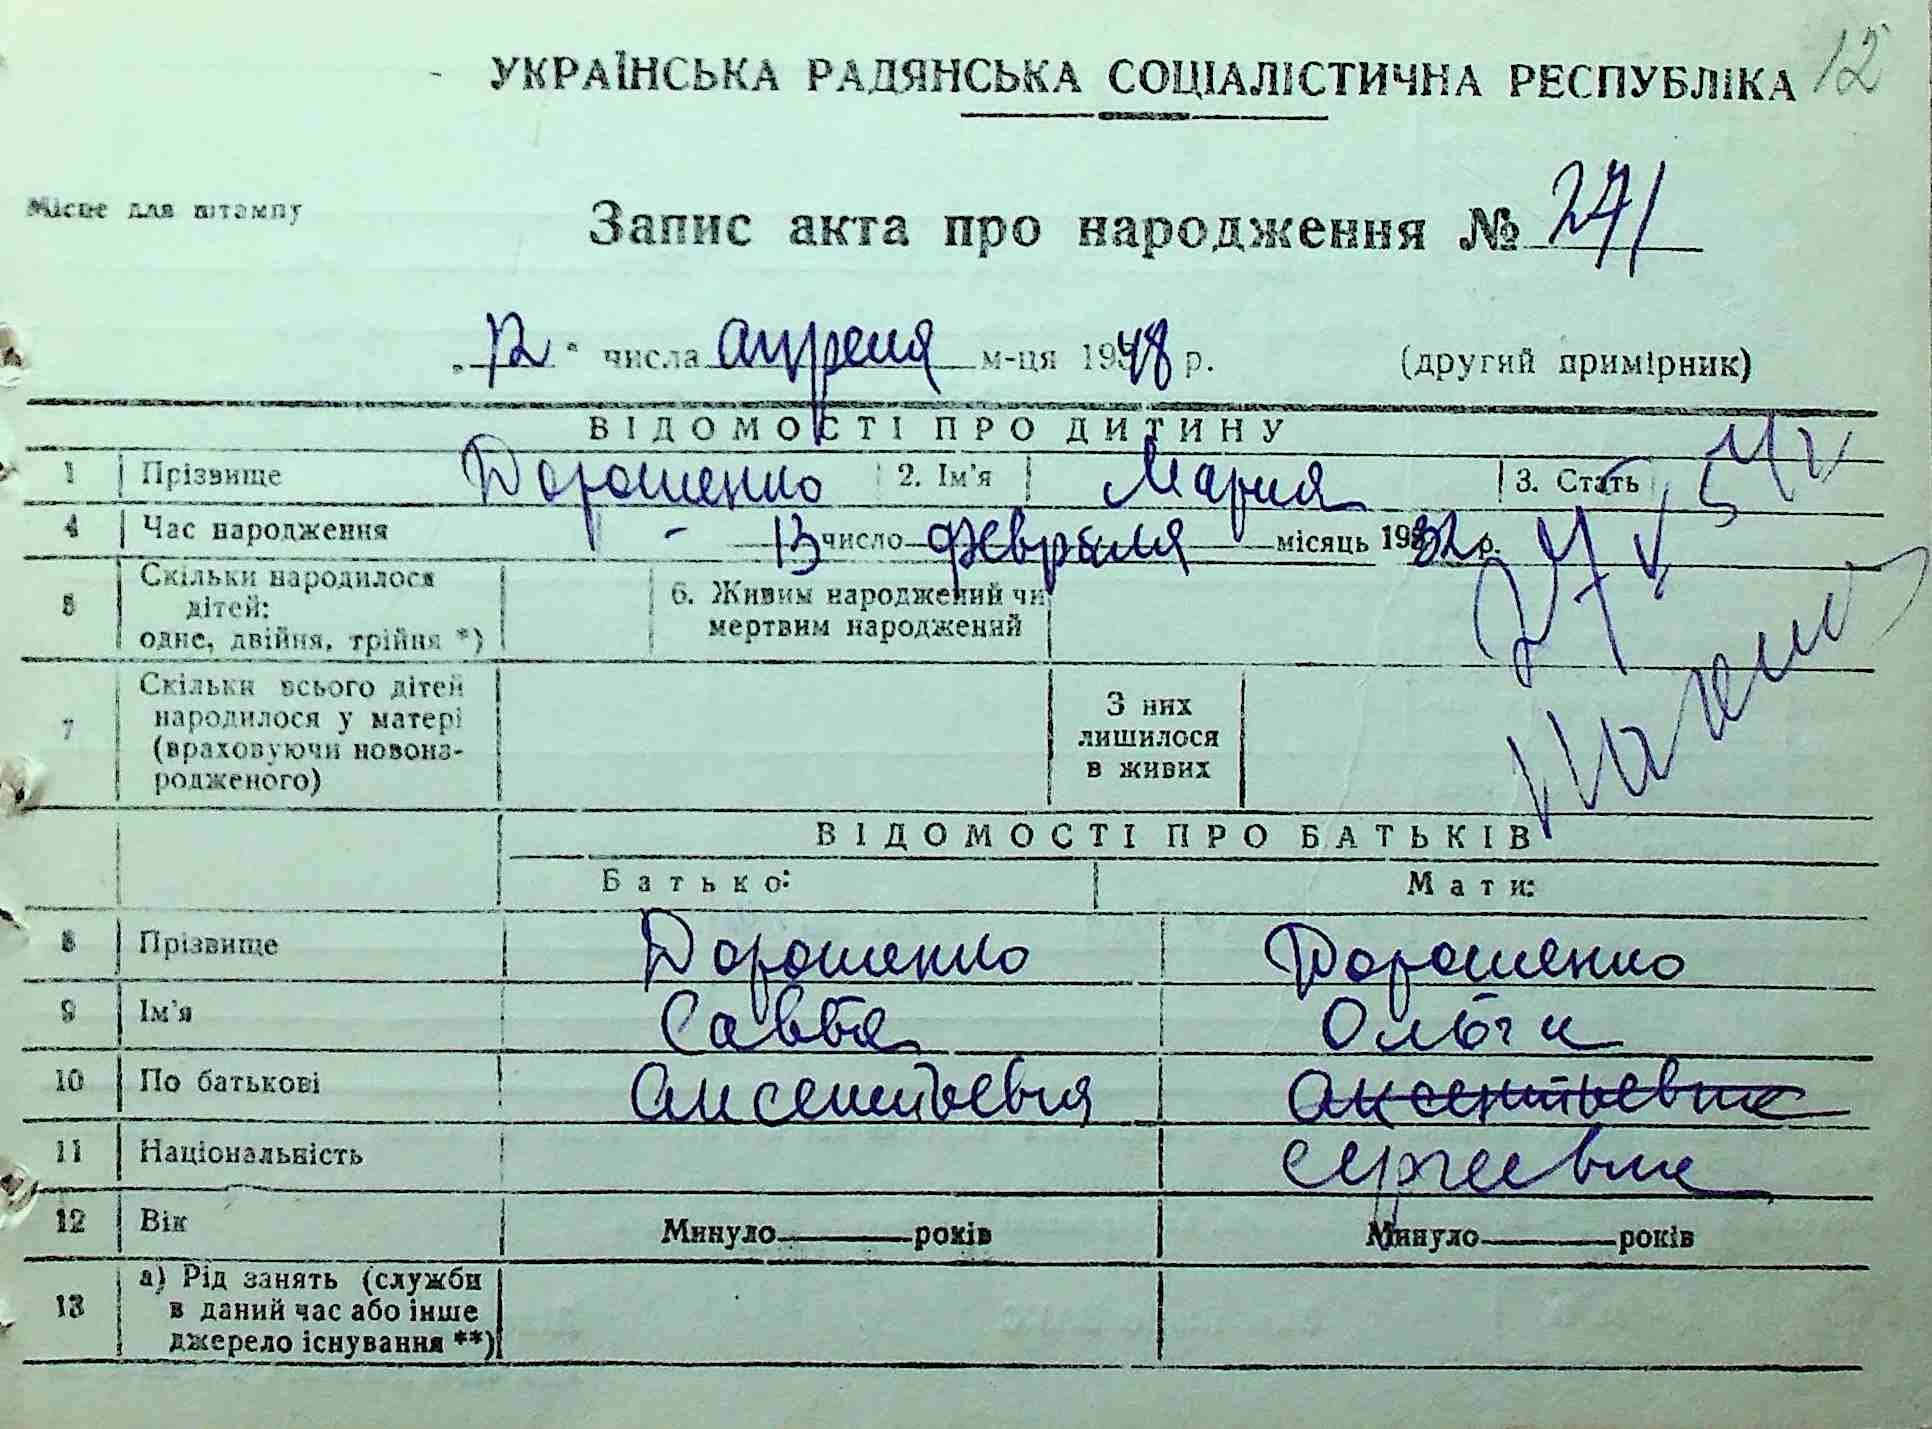 12
УКРАЇНСЬКА РАДЯНСЬКА СОЦІАЛІСТИЧНА РЕСПУБЛІКА
Місце для штампу
Запис акта про народження № 271
„12" числа апреля м-ця 1948 р. (другий примірник)
ВІДОМОСТІ ПРО ДИТИНУ
1 Прізвище Дорошенко 2. Ім'я Мария 3. Стать
4 Час народження - 13 число февраля місяць 1932 р.
5 Скільки народилося дітей: одне, двійня, трійня *) 6. Живим народжений чи мертвим народжений
7 Скільки всього дітей народилося у матері (враховуючи новонародженого) З них лишилося в живих
ВІДОМОСТІ ПРО БАТЬКІВ
Батько: Мати:
8 Прізвище Дорошенко Дорошенко
9 Ім'я Савва Ольга
10 По батькові Аксентьевич Аксентьевна
11 Національність Сергеевна
12 Вік Минуло років Минуло років
13 а) Рід занять (служби в даний час або інше джерело існування **)